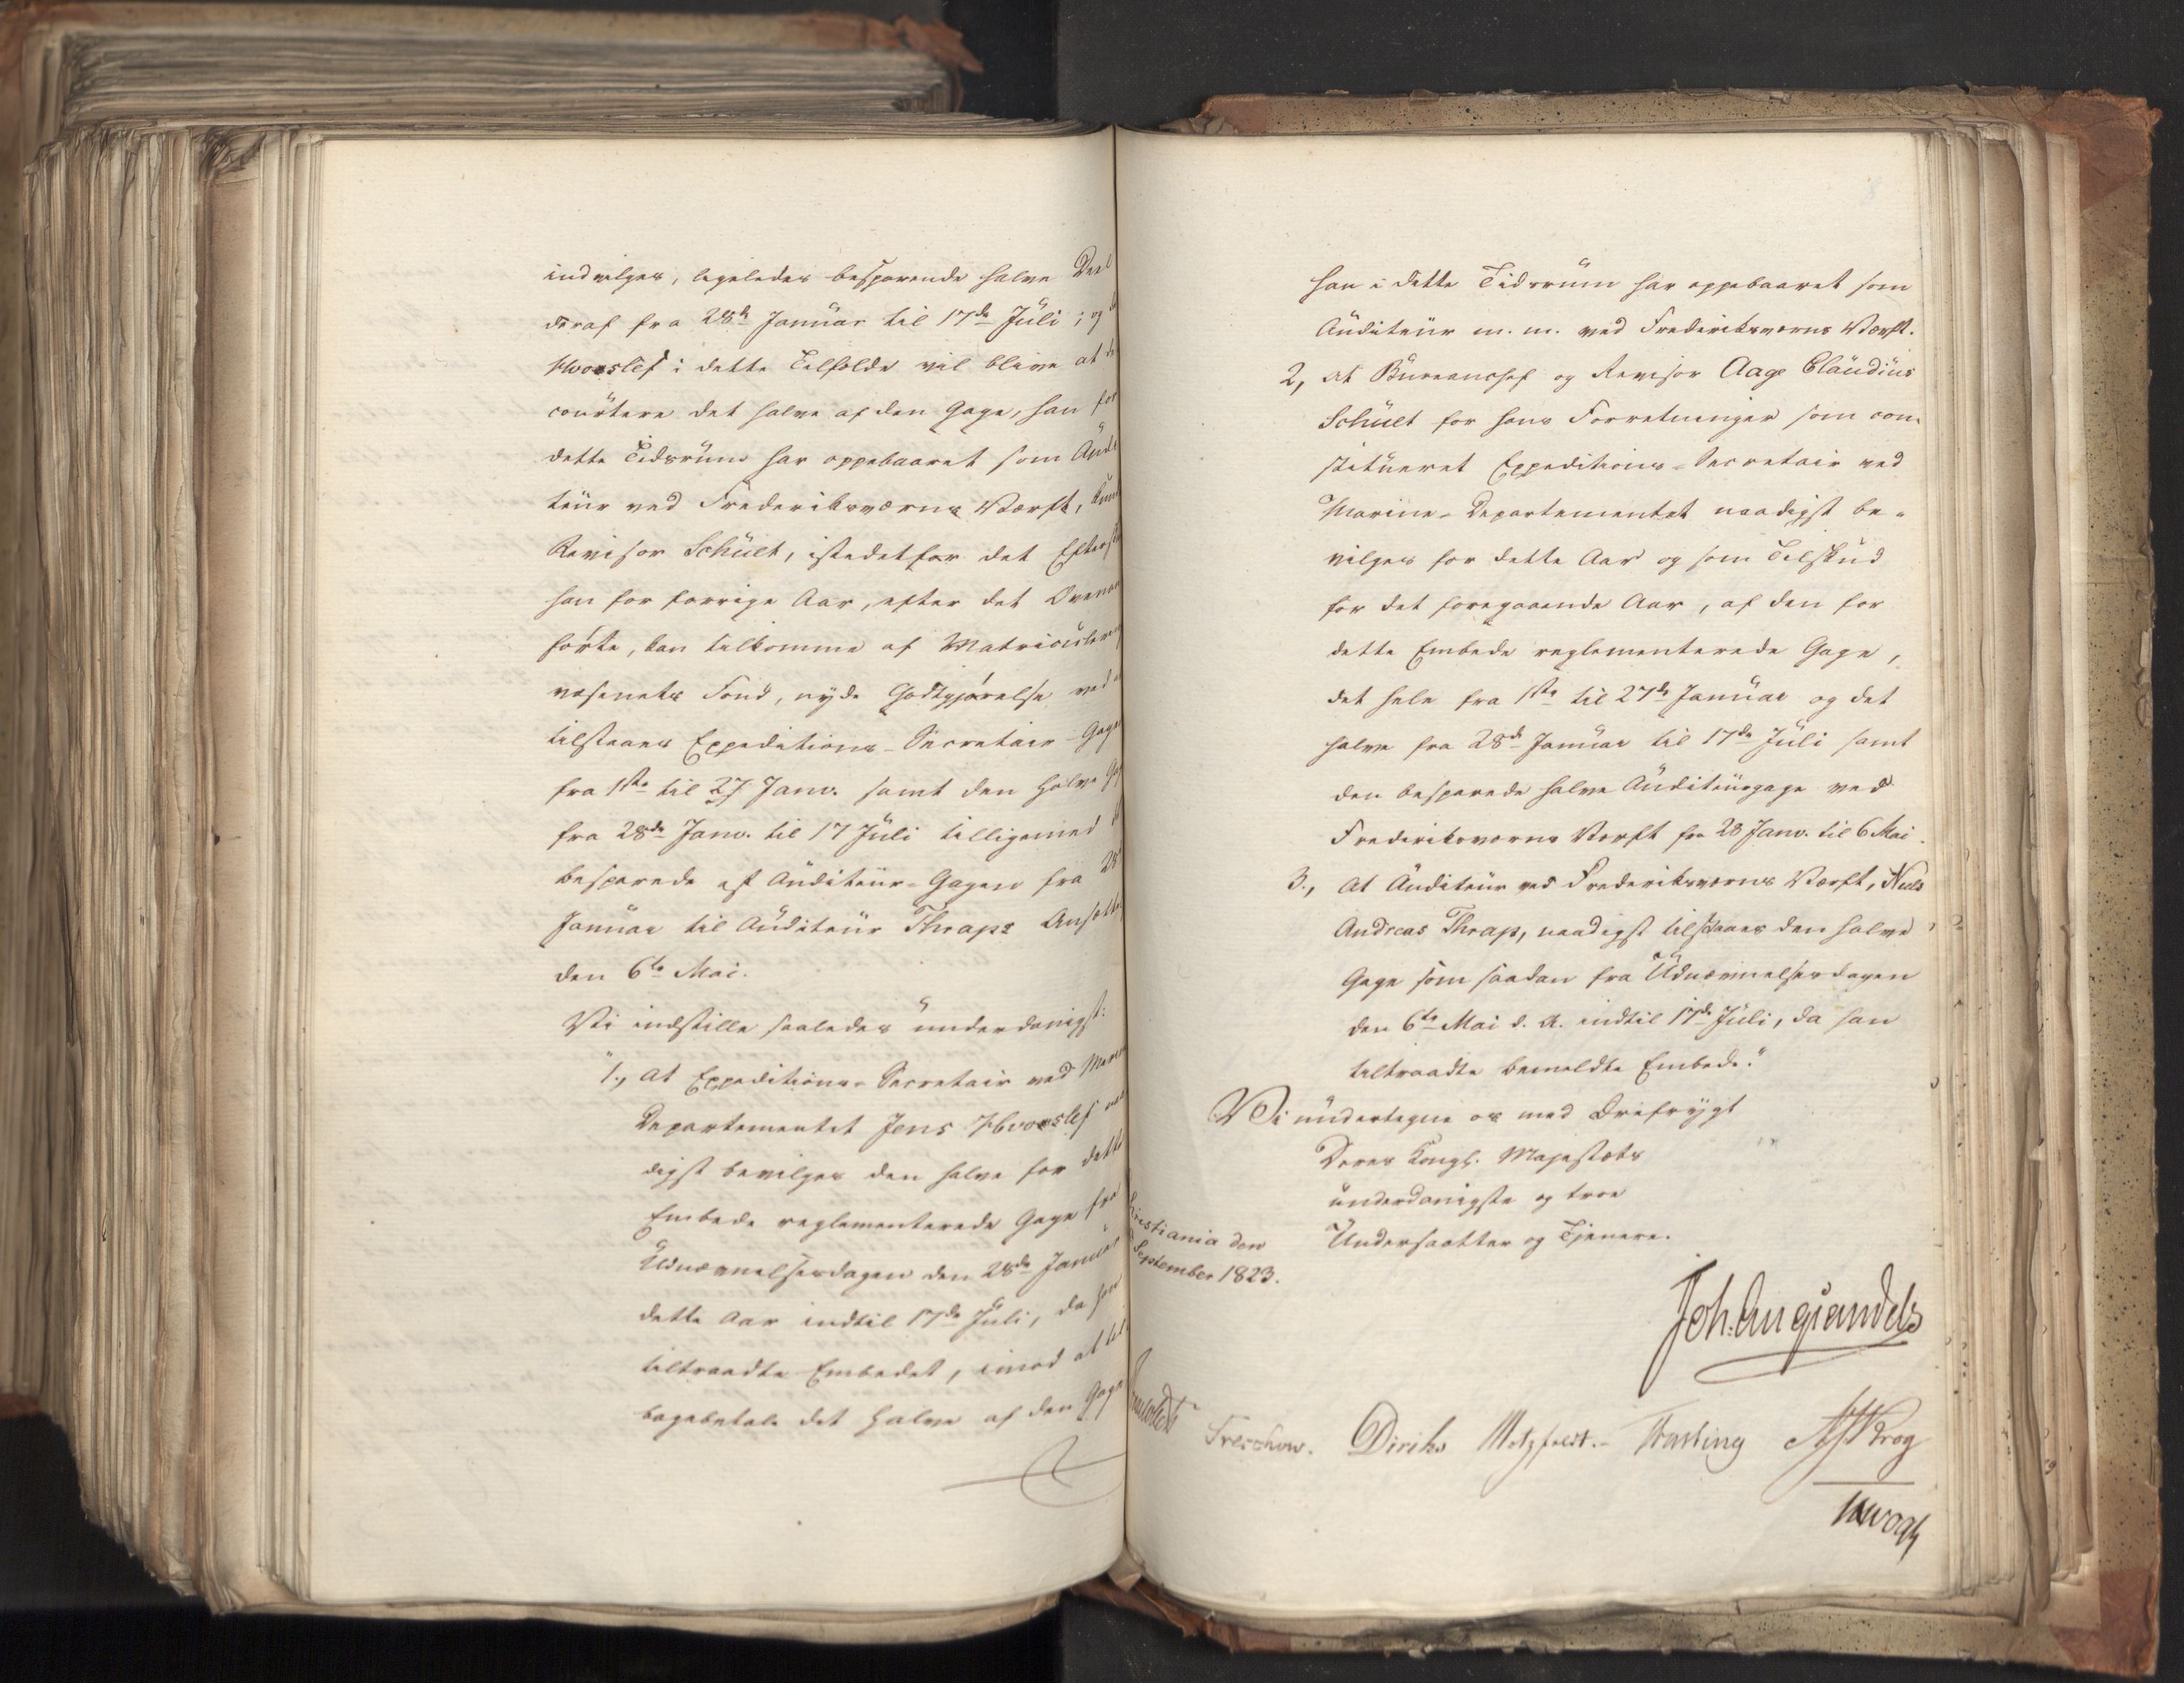 indvilges, ligeledes besparende halve Deel
deraf fra 28de Januar til 17de Juli; og
Hvoslef i dette Tilfælde vil blive at
courtere det halve af den Gage, han for
dette Tidsrum har oppebaaret som Audi
teur ved Frederiksværns Værft,
Revisor Schult, istedetfor det
han for forrige Aar, efter det Ovenan
førte, kan tilkomme af Matriculerings
væsenets Fond, nyde Godtgjørelse ved
tilstaaes Expeditions-Secretair-Gage
fra 1ste til 27 Janv. samt den halve
fra 28de Janv. til 17 Juli tilligemed
besparede af Auditeur-Gagen fra 28
Januar til Auditeur Thraps Ansættelse
den 6te Mai.
Vi indstille saaledes underdanigst:
"1, at Expeditions-Secretair ved Marine
Departementet Jens Hvoslef naa
digst bevilges den halve for dette
Embede reglementerede Gage fra
Udnævnelsesdagen den 28de Januar
dette Aar indtil 17de Juli, da han
tiltraadte Embedet, imod at til
bagebetale det halve af den Gage
han i dette Tidsrum har oppebaaret som
Auditeur m. m. ved Frederiksværns Værft.
2, at Bureauchef og Revisor Aage Claudius
Schult for hans Forretninger som con-
stitueret Expeditions-Secretair ved
Marine-Departementet naadigst be-
vilges for dette Aar og som Tilskud
for det foregaaende Aar, af den for
dette Embede reglementerede Gage,
det hele fra 1ste til 27de Januar og det
halve fra 28de Januar til 17de Juli samt
den besparede halve Auditeurgage ved
Frederiksværns Værft fra 28 Janv. til 6 Mai.
3., at Auditeur ved Frederiksværns Værft, Niels
Andreas Thrap, naadigst tilstaaes den halve
Gage som saadan fra Udnævnelsesdagen
den 6te Mai d. A. indtil 17de Juli, da han
tiltraadte bemeldte Embede."
Vi undertegne os med Ærefrygt
Deres Kongl. Majestæts
underdanigste og troe
Undersaatter og Tjenere.
Christiania den
September 1823.
Joh. Aug. Sandels
Treschow. Diriks Motzfeldt. Fasting Krog
Vogt